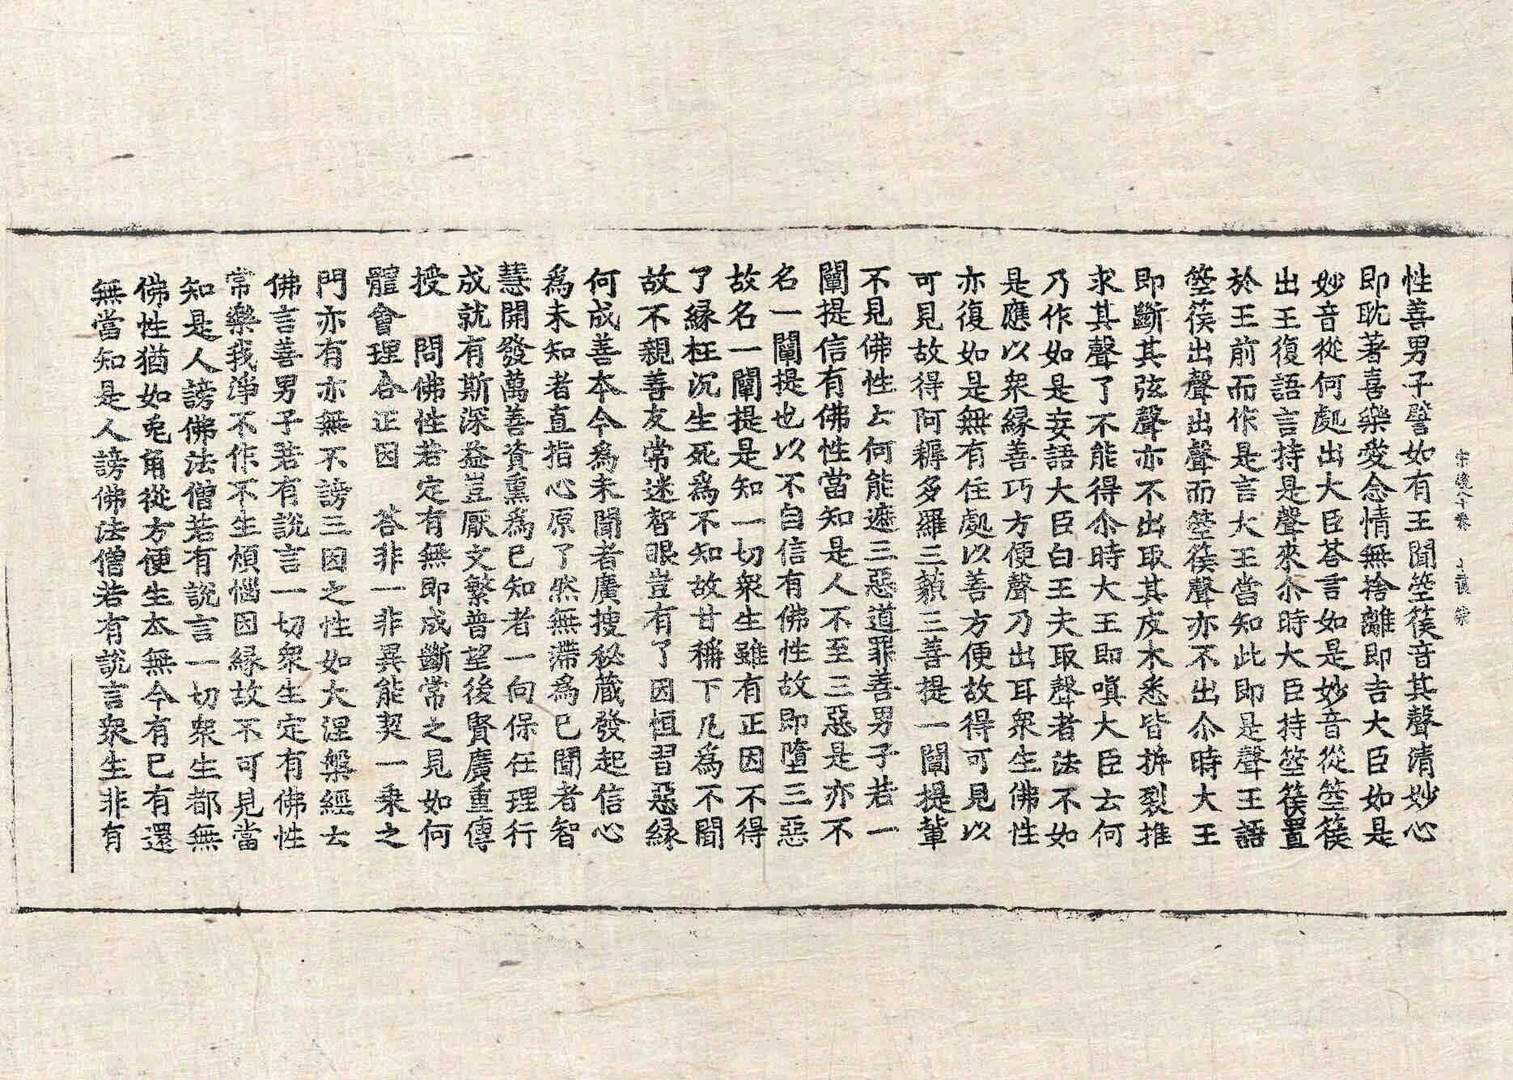 性善男子譬如有王聞箜篌音其聲清妙心
即耽著喜樂愛念情無捨離即告大臣如是
妙音從何處出大臣荅言如是妙音從箜篌
出王復語言持是聲來尒時大臣持箜篌置
於王前而作是言大王當知此即是聲王語
箜篌出聲出聲而箜篌聲亦不出尒時大王
即斷其弦聲亦不出取其皮木悉皆拆裂推
求其聲了不能得尒時大王即嗔大臣云何
乃作如是妄語大臣白王夫取聲者法不如
是應以衆緣善巧方便聲乃出耳衆生佛性
亦復如是無有住處以善方便故得可見以
可見故得阿耨多羅三藐三菩提一闡提輩
不見佛性云何能遮三惡道罪善男子若一
闡提信有佛性當知是人不至三惡是亦不
名一闡提也以不自信有佛性故即墮三惡
故名一闡提是知一切衆生雖有正因不得
了緣枉沉生死爲不知故甘稱下凡爲不聞
故不親善友常迷智眼豈有了因恒習惡緣
何成善本今爲未聞者廣搜秘藏發起信心
爲未知者直指心原了然無滯爲已聞者智
慧開發萬善資熏爲已知者一向保任理行
成就有斯深益豈厭文繁普望後賢廣重傳
授 問佛性若定有無即成斷常之見如何
體會理合正因 荅非一非異能契一乗之
門亦有亦無不謗三因之性如大涅槃經云
佛言善男子若有說言一切衆生定有佛性
常樂我淨不作不生煩惱因緣故不可見當
知是人謗佛法僧若有說言一切衆生都無
佛性猶如兎角從方便生本無今有已有還
無當知是人謗佛法僧若有說言衆生非有